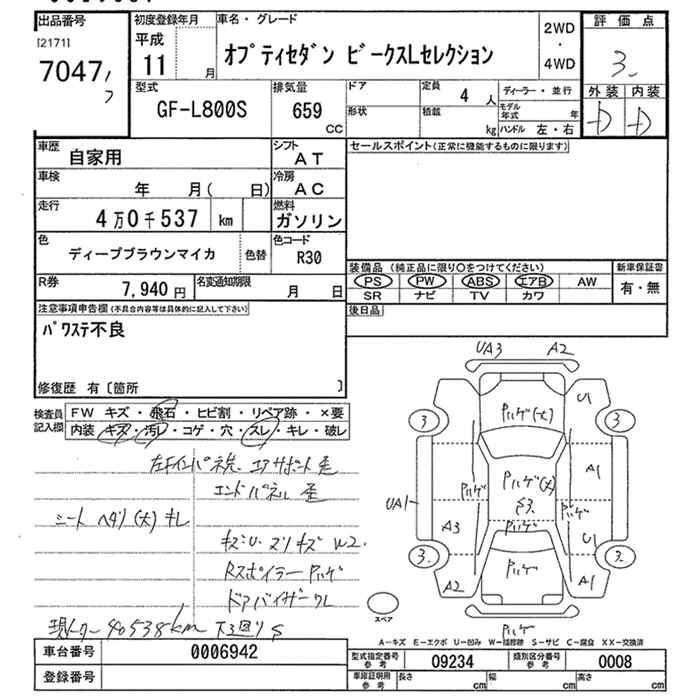 出品番号
[2171]
7047
初度登録年月
平成
11 月
車名・グレード
オプティセダン ビークスLセレクション
2WD
・
4WD
評価点
3
外装 内装
D D
型式
GF-L800S
排気量
659
CC
ドア
形状
定員
4 人
積載
kg
ディーラー・並行
モデル年式 年
ハンドル 左・右
車歴
自家用
シフト
AT
車検
年 月( 日)
冷房
AC
走行
4万0千537 km
燃料
ガソリン
色
ディープブラウンマイカ
色替
色コード
R30
R券
7,940円
名変通知期限
月 日
セールスポイント(正常に機能するものに限ります)
装備品(純正品に限り○をつけてください)
PS PW ABS エアB AW
SR ナビ TV カワ
新車保証書
有・無
後日品
注意事項申告欄(不具合内容等は具体的に記入して下さい)
パワステ不良
修復歴 有〔箇所 〕
検査員記入欄
FW キズ・飛石・ヒビ割・リペア跡・×要
内装 キズ・汚レ・コゲ・穴・スレ・キレ・破レ
エンドパネル 歪
シート ヘタリ(大) キレ
キズU. スリキズ W2.
Rスポイラー Pハゲ
ドアバイザーワレ
40538km
UA3 A2
3 3
Pハゲ(大)
U1
A1
Pハゲ
Pハゲ(大)
S3.
Pハゲ
Pハゲ
UA1
A3
U1
3. 3.
A2
Pハゲ
A1
Pハゲ
スペア
A-キズ E-エクボ U-凹み W-補修跡 S-サビ C-腐食 XX-交換済
車台番号
0006942
登録番号
型式指定番号
参考
09234
類別区分番号
参考
0008
車庫証明用
参考
長さ cm
幅 cm
高さ cm